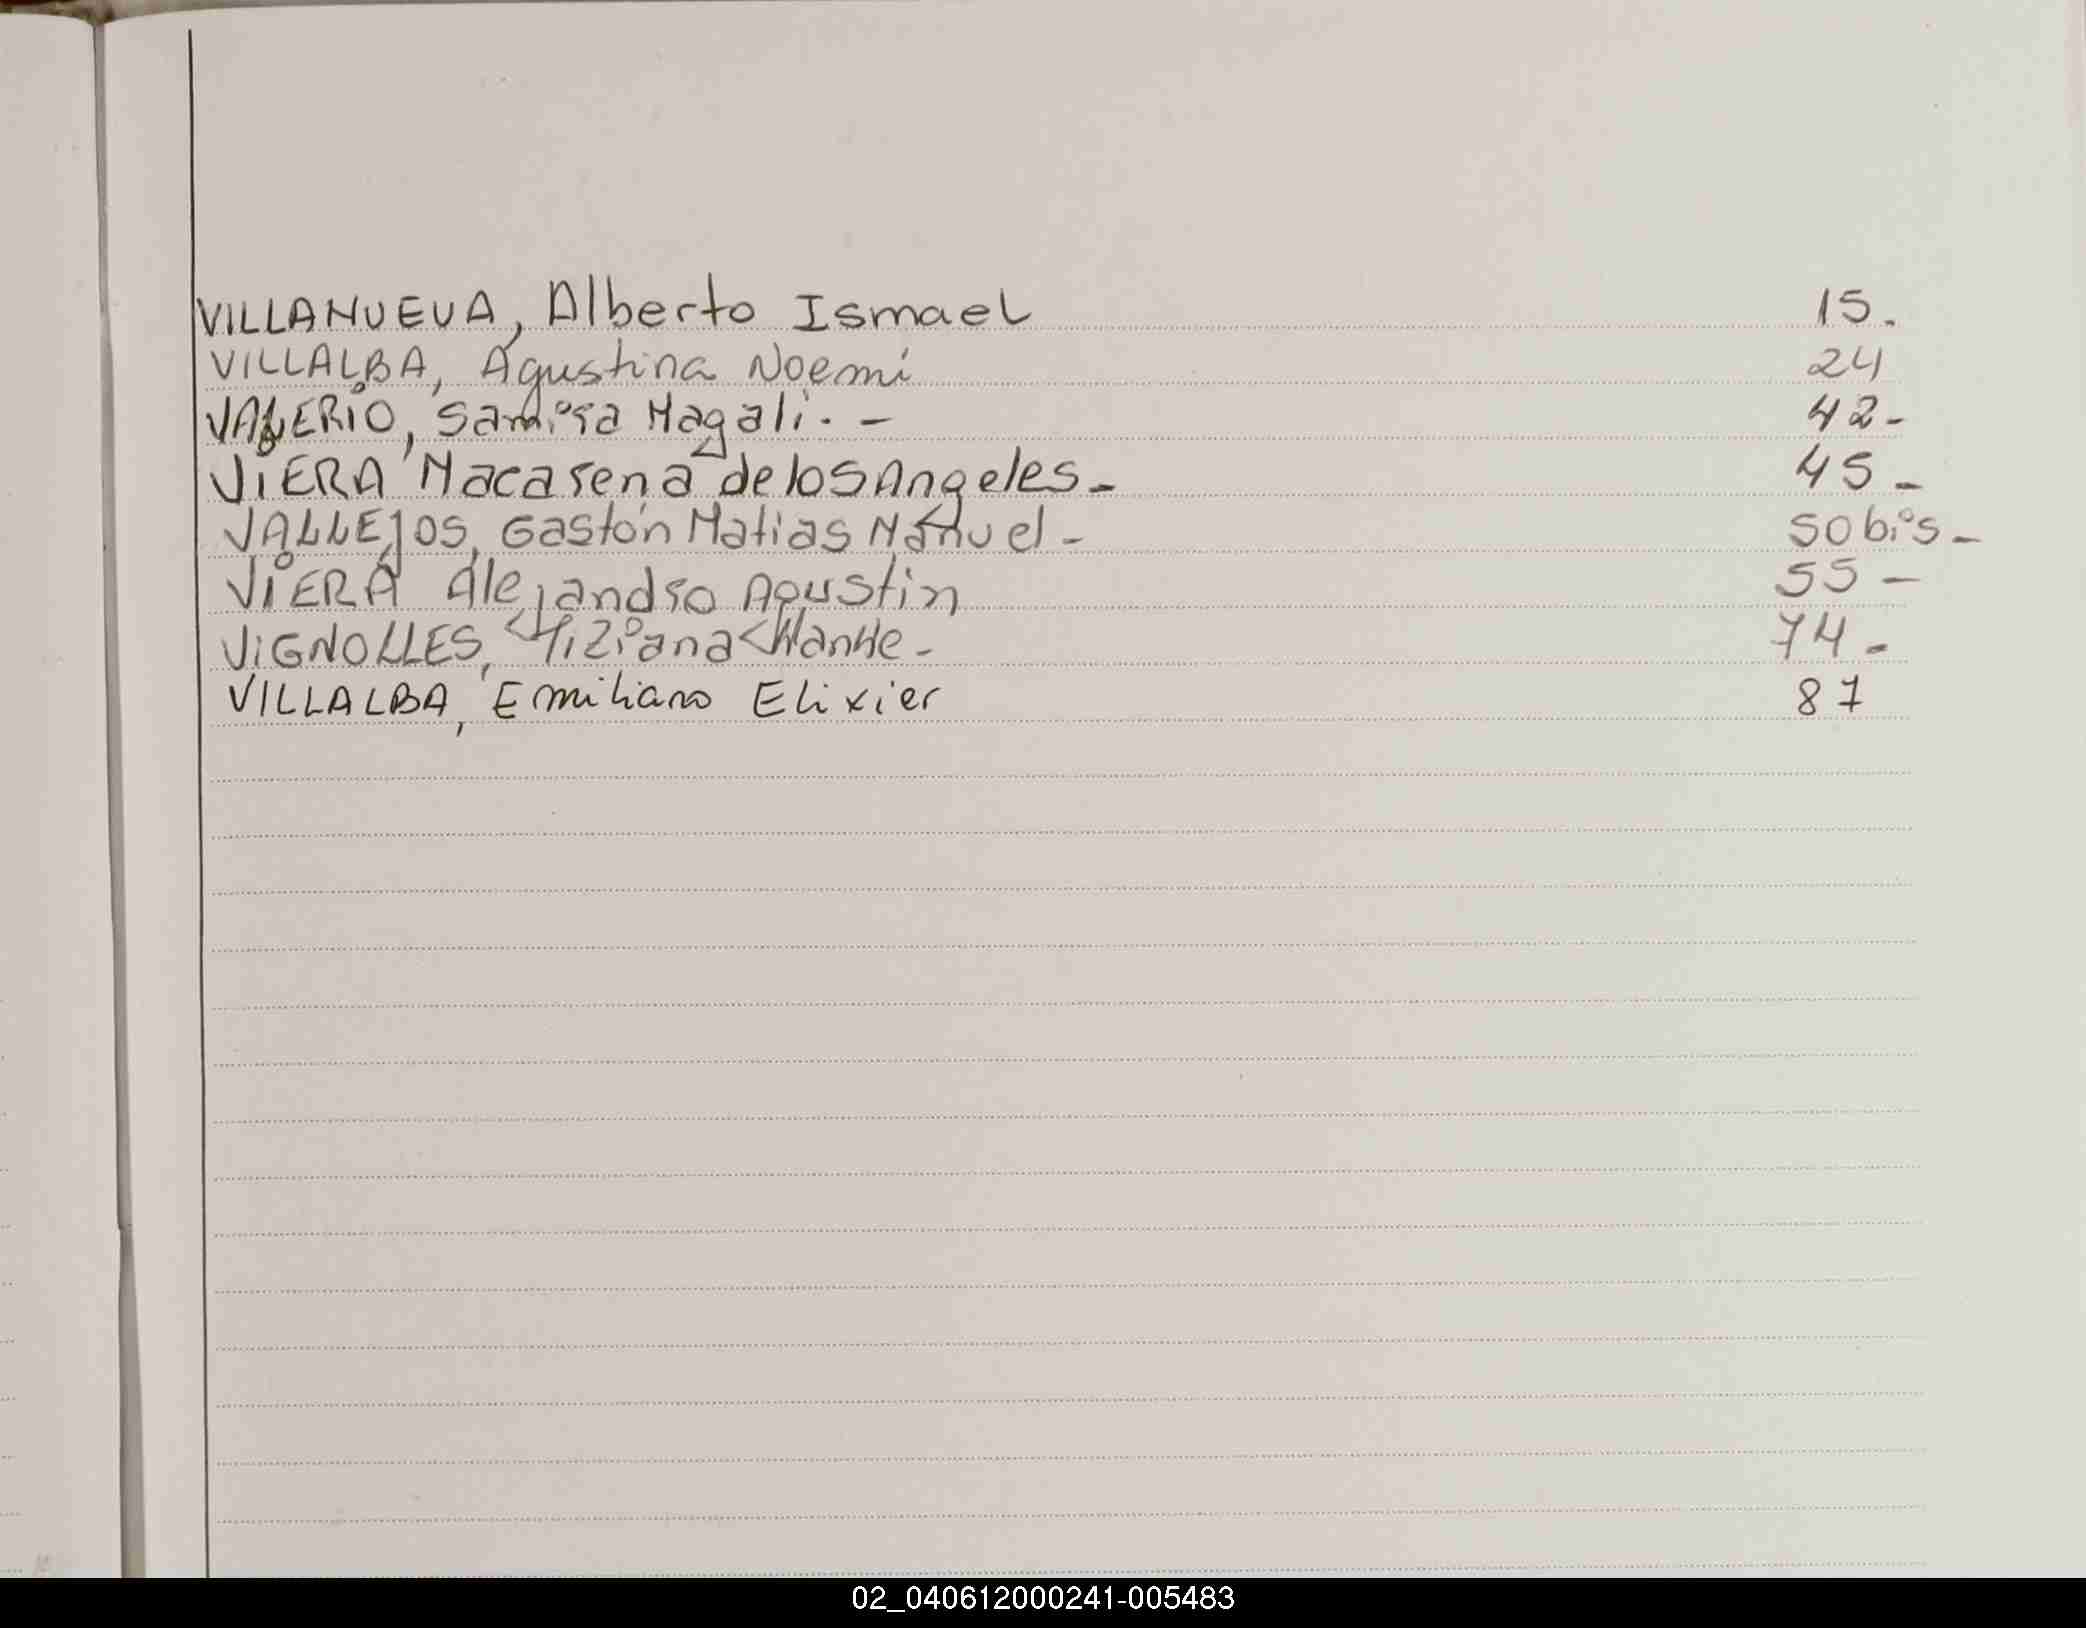 VILLANUEVA, Alberto Ismael 15.
VILLALBA, Agustina Noemí 24
VALERIO, Samira Magali. - 42-
VIERA Macarena de los Angeles - 45-
VALLEJOS, Gastón Matias Manuel - 50 bis -
VIERA Alejandro Agustin 55 -
VIGNOLLES, Tiziana 74 -
VILLALBA, Emiliano Elixier 87
02_040612000241-005483